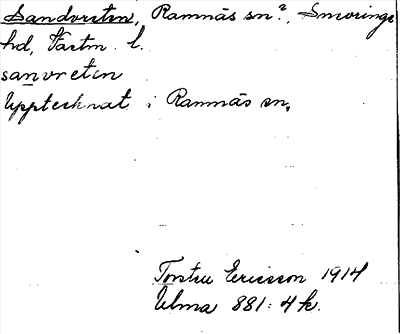 Sandvreten, Ramnäs sn?, Snevringe
hd, Västm. l.
sanvretən
Upptecknat i Ramnäs sn.
Torsten Ericsson 1914
Ulma 881:4 k.